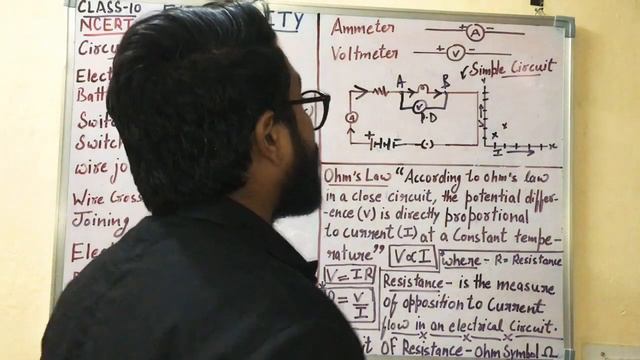 CLASS-10
NCERT
ELECTRICITY
Circu
Elect
Batt
Switc
Switch
wire jo
Wire Cross
Joining
Elect
Ammeter + A -
Voltmeter + V -
Simple Circuit
A B
V
P.D
+
(·)
V
I
x
Ohm's Law "According to ohm's law
in a close circuit, the potential differ-
-ence (V) is directly proportional
to current (I) at a Constant tempe-
rature" V∝I where - R = Resistance
V = IR
R = V/I
Resistance - is the measure
of opposition to current
flow in an electrical circuit.
it OF Resistance - Ohm Symbol Ω